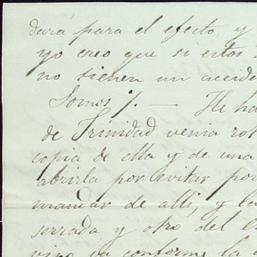 dará para el efecto y
yo creo que si estos
no tienen un accide
Somos /. — He ha
de Trinidad venia rot
copia de ella y de una
abrirla por evitar por
mandar de alli, y la
serrada y otro del
vino va conforme la